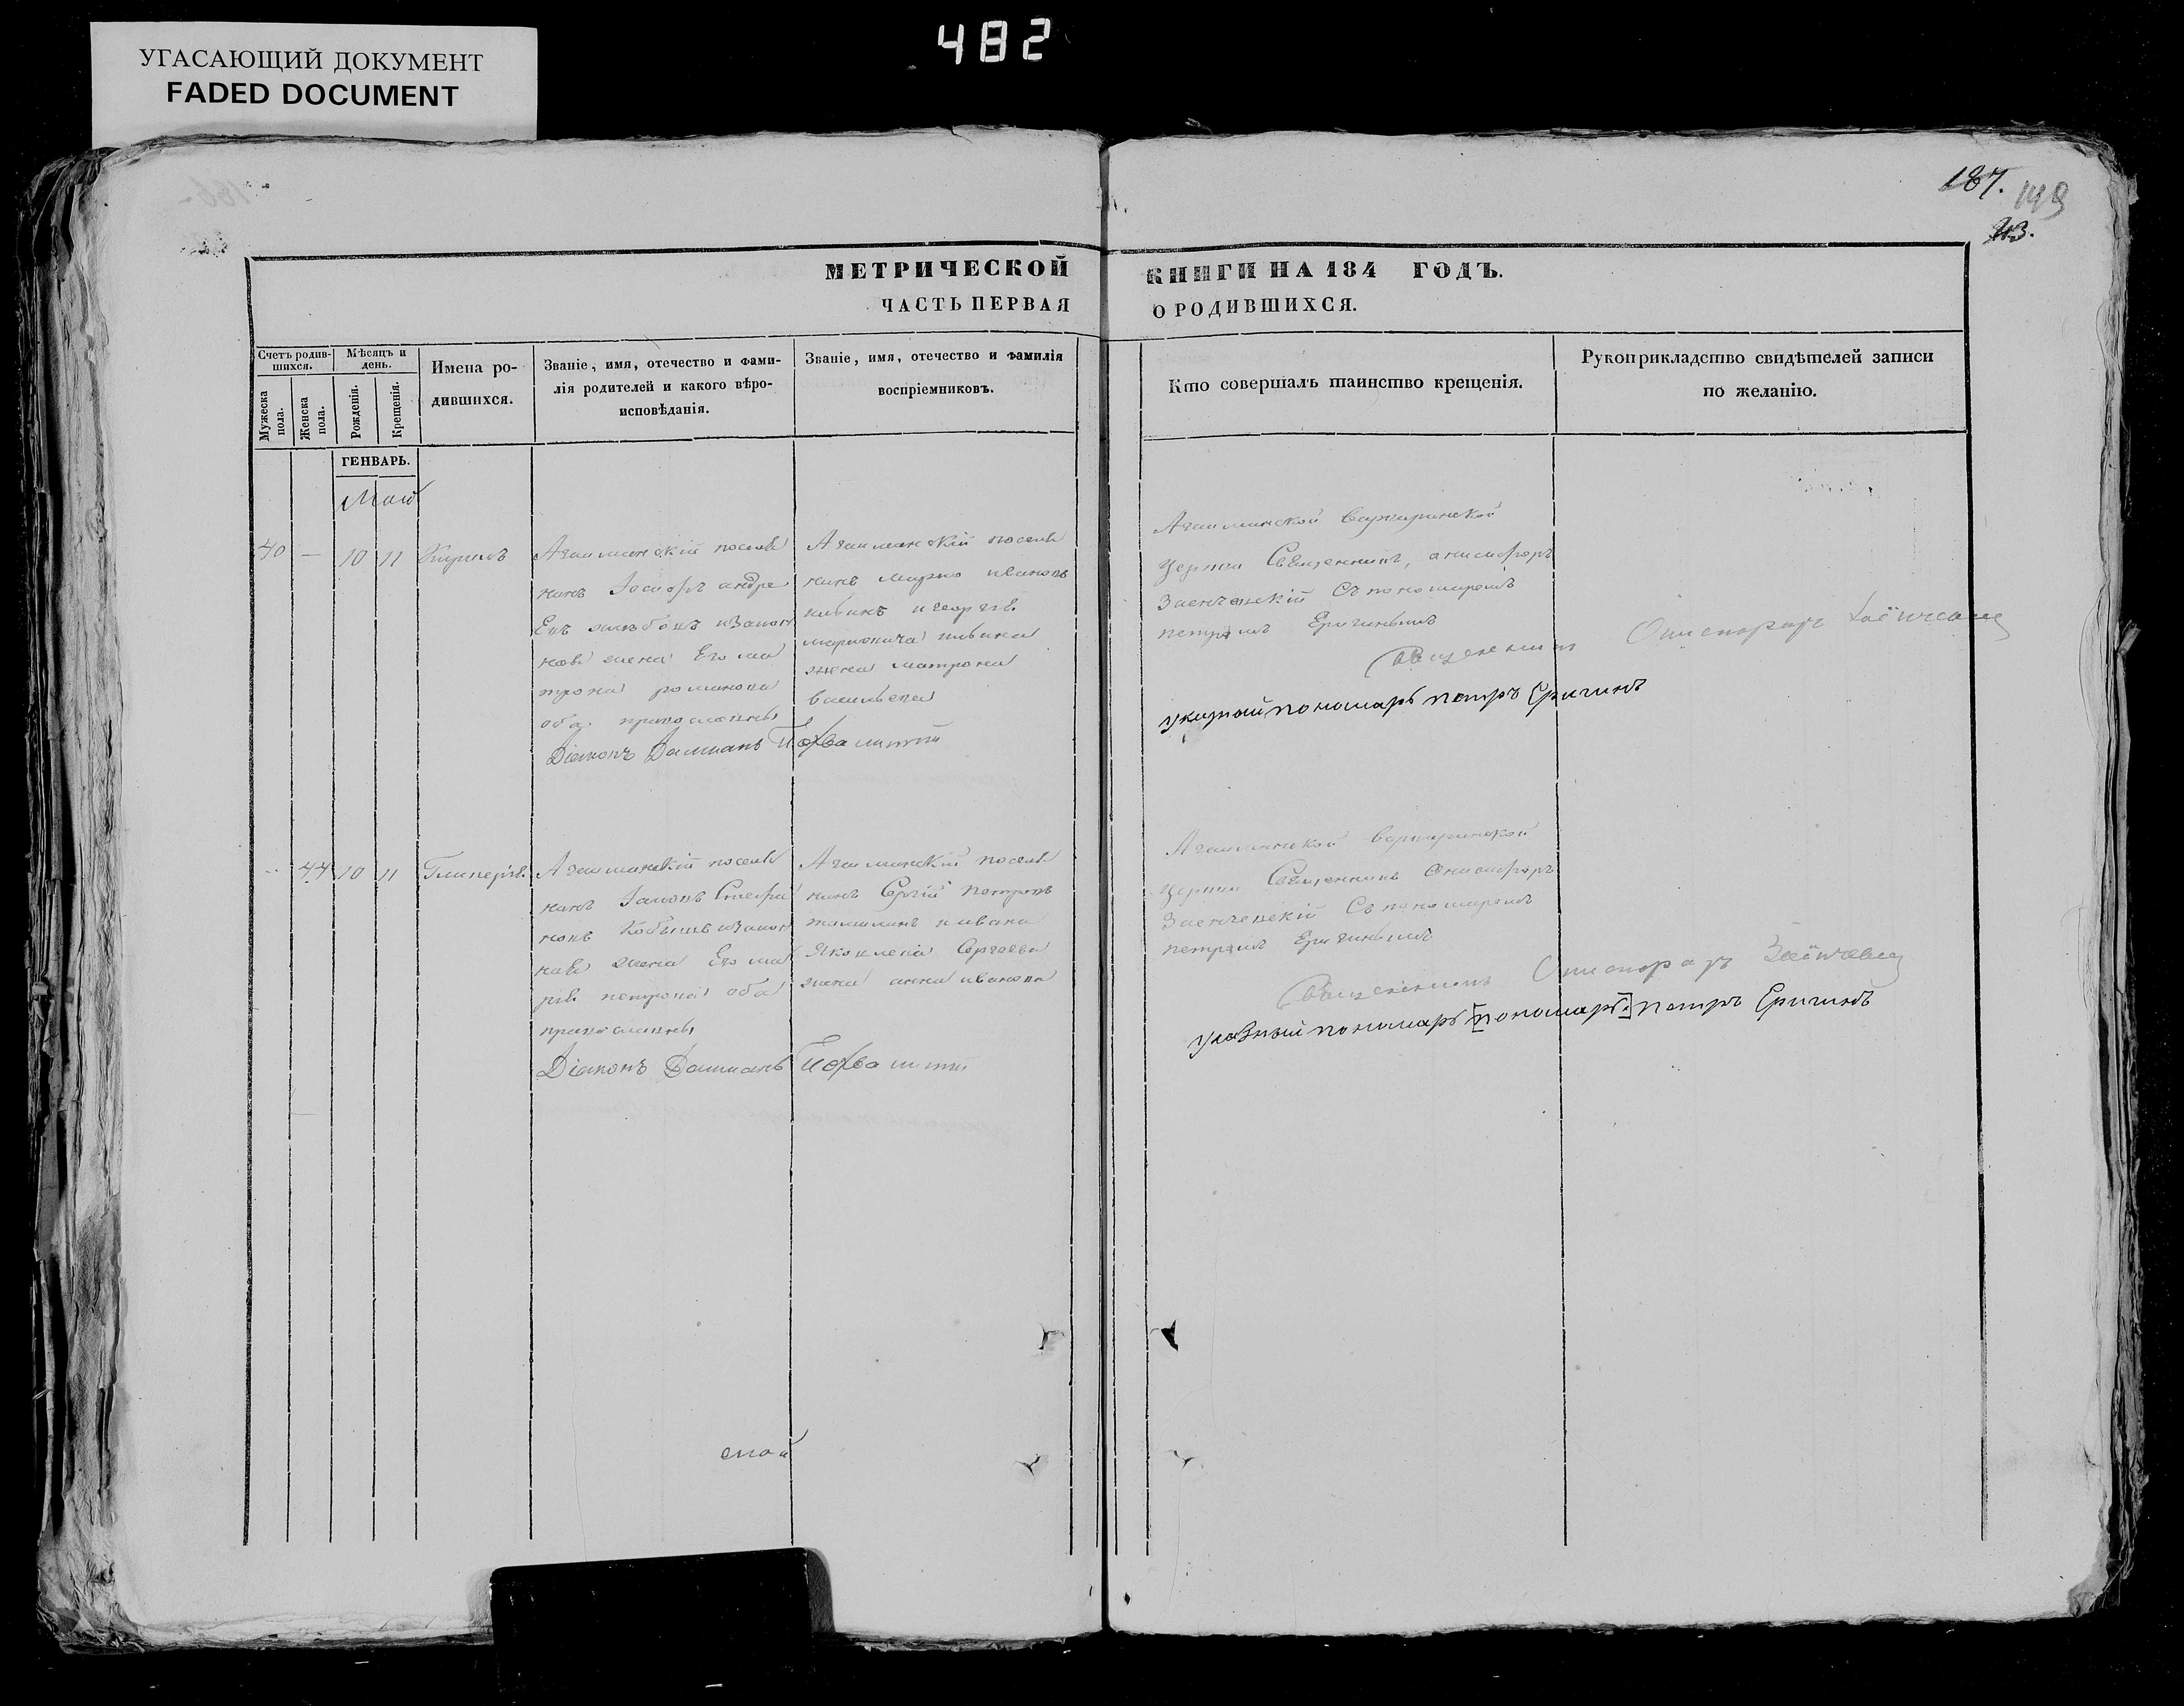 УГАСАЮЩИЙ ДОКУМЕНТ
FADED DOCUMENT
482
187.
143.
МЕТРИЧЕСКОЙ КНИГИ НА 184 ГОДЪ.
ЧАСТЬ ПЕРВАЯ О РОДИВШИХСЯ.
Счетъ родив-
шихся.
Мужеска пола.
Женска пола.
Мѣсяцъ и
день.
Рожденія.
Крещенія.
Имена ро-
дившихся.
Званіе, имя, отечество и фами-
лія родителей и какого вѣро-
исповѣданія.
Званіе, имя, отечество и фамилія
воспріемниковъ.
Кто совершалъ таинство крещенія.
Рукоприкладство свидѣтелей записи
по желанію.
ГЕНВАРЬ.
Май
40 — 10 11 Кирилъ
Агаиманскій поселя
нинъ Іосифъ андре
Евъ изакон
ной жена Его ма
трона романова
оба православны
Діаконъ Даміанъ
Агаиманскій поселя
нинъ Марко ивановъ
пивинъ и георгія
марковича пивина
жена матрона
васильева
Агаиманской варваринской
церкви Священникъ, анисифоръ
Заенчевскій Съ пономаремъ
петромъ Еригинымъ
Священникъ
пономарь петръ Еригинъ
44 10 11 Гликерія
Агаиманскій поселя
нинъ Іаковъ Стефа
новъ изакон
ная жена Его ма
рія петрова оба
православны
Діаконъ Даміанъ
Агаиманскій поселя
нинъ Сергій петровъ
и ивана
Яковлевича Сергеева
жена анна иванова
Агаиманской варваринской
церкви Священникъ Онисифоръ
Заенчевскій Съ пономаремъ
петромъ Еригинымъ
Священникъ
указный пономарь [пономарь] петръ Еригинъ
май